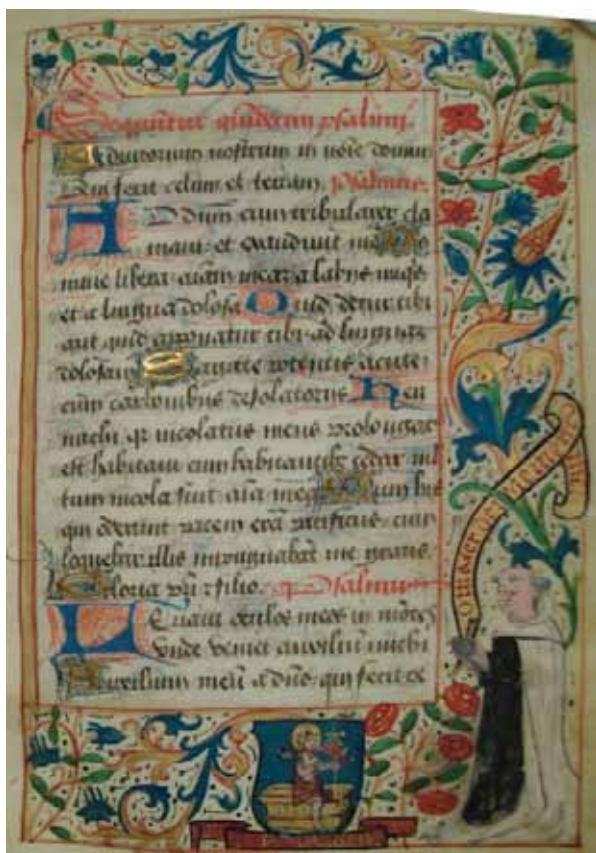 Sequntur quindecim psalmi.
Adiutorium nostrum in noīe domini
Qui fecit celum et terram. Psalmus.
AD Dominū cum tribularer cla
maui: et exaudiuit me Do
mine libera aīam meam a labijs iniqs
et a lingua dolosa Quid detur tibi
aut quid apponatur tibi ad linguam
dolosam Sagitte potentis acute:
cum carbonibus desolatorijs Heu
michi qr incolatus meus prolongat
est habitaui cum habitantibꝰ cedar ml
tum incola fuit aīa mea Cum his
qui oderunt pacem erā pacificus: cum
loquebar illis impugnabāt me gratis.
Gloria pri et filio. Psalmus
LEuaui oculos meos in mōtes
vnde veniet auxiliū michi
Auxilium meū a dūo: qui fecit ce
O mater dei memento mei